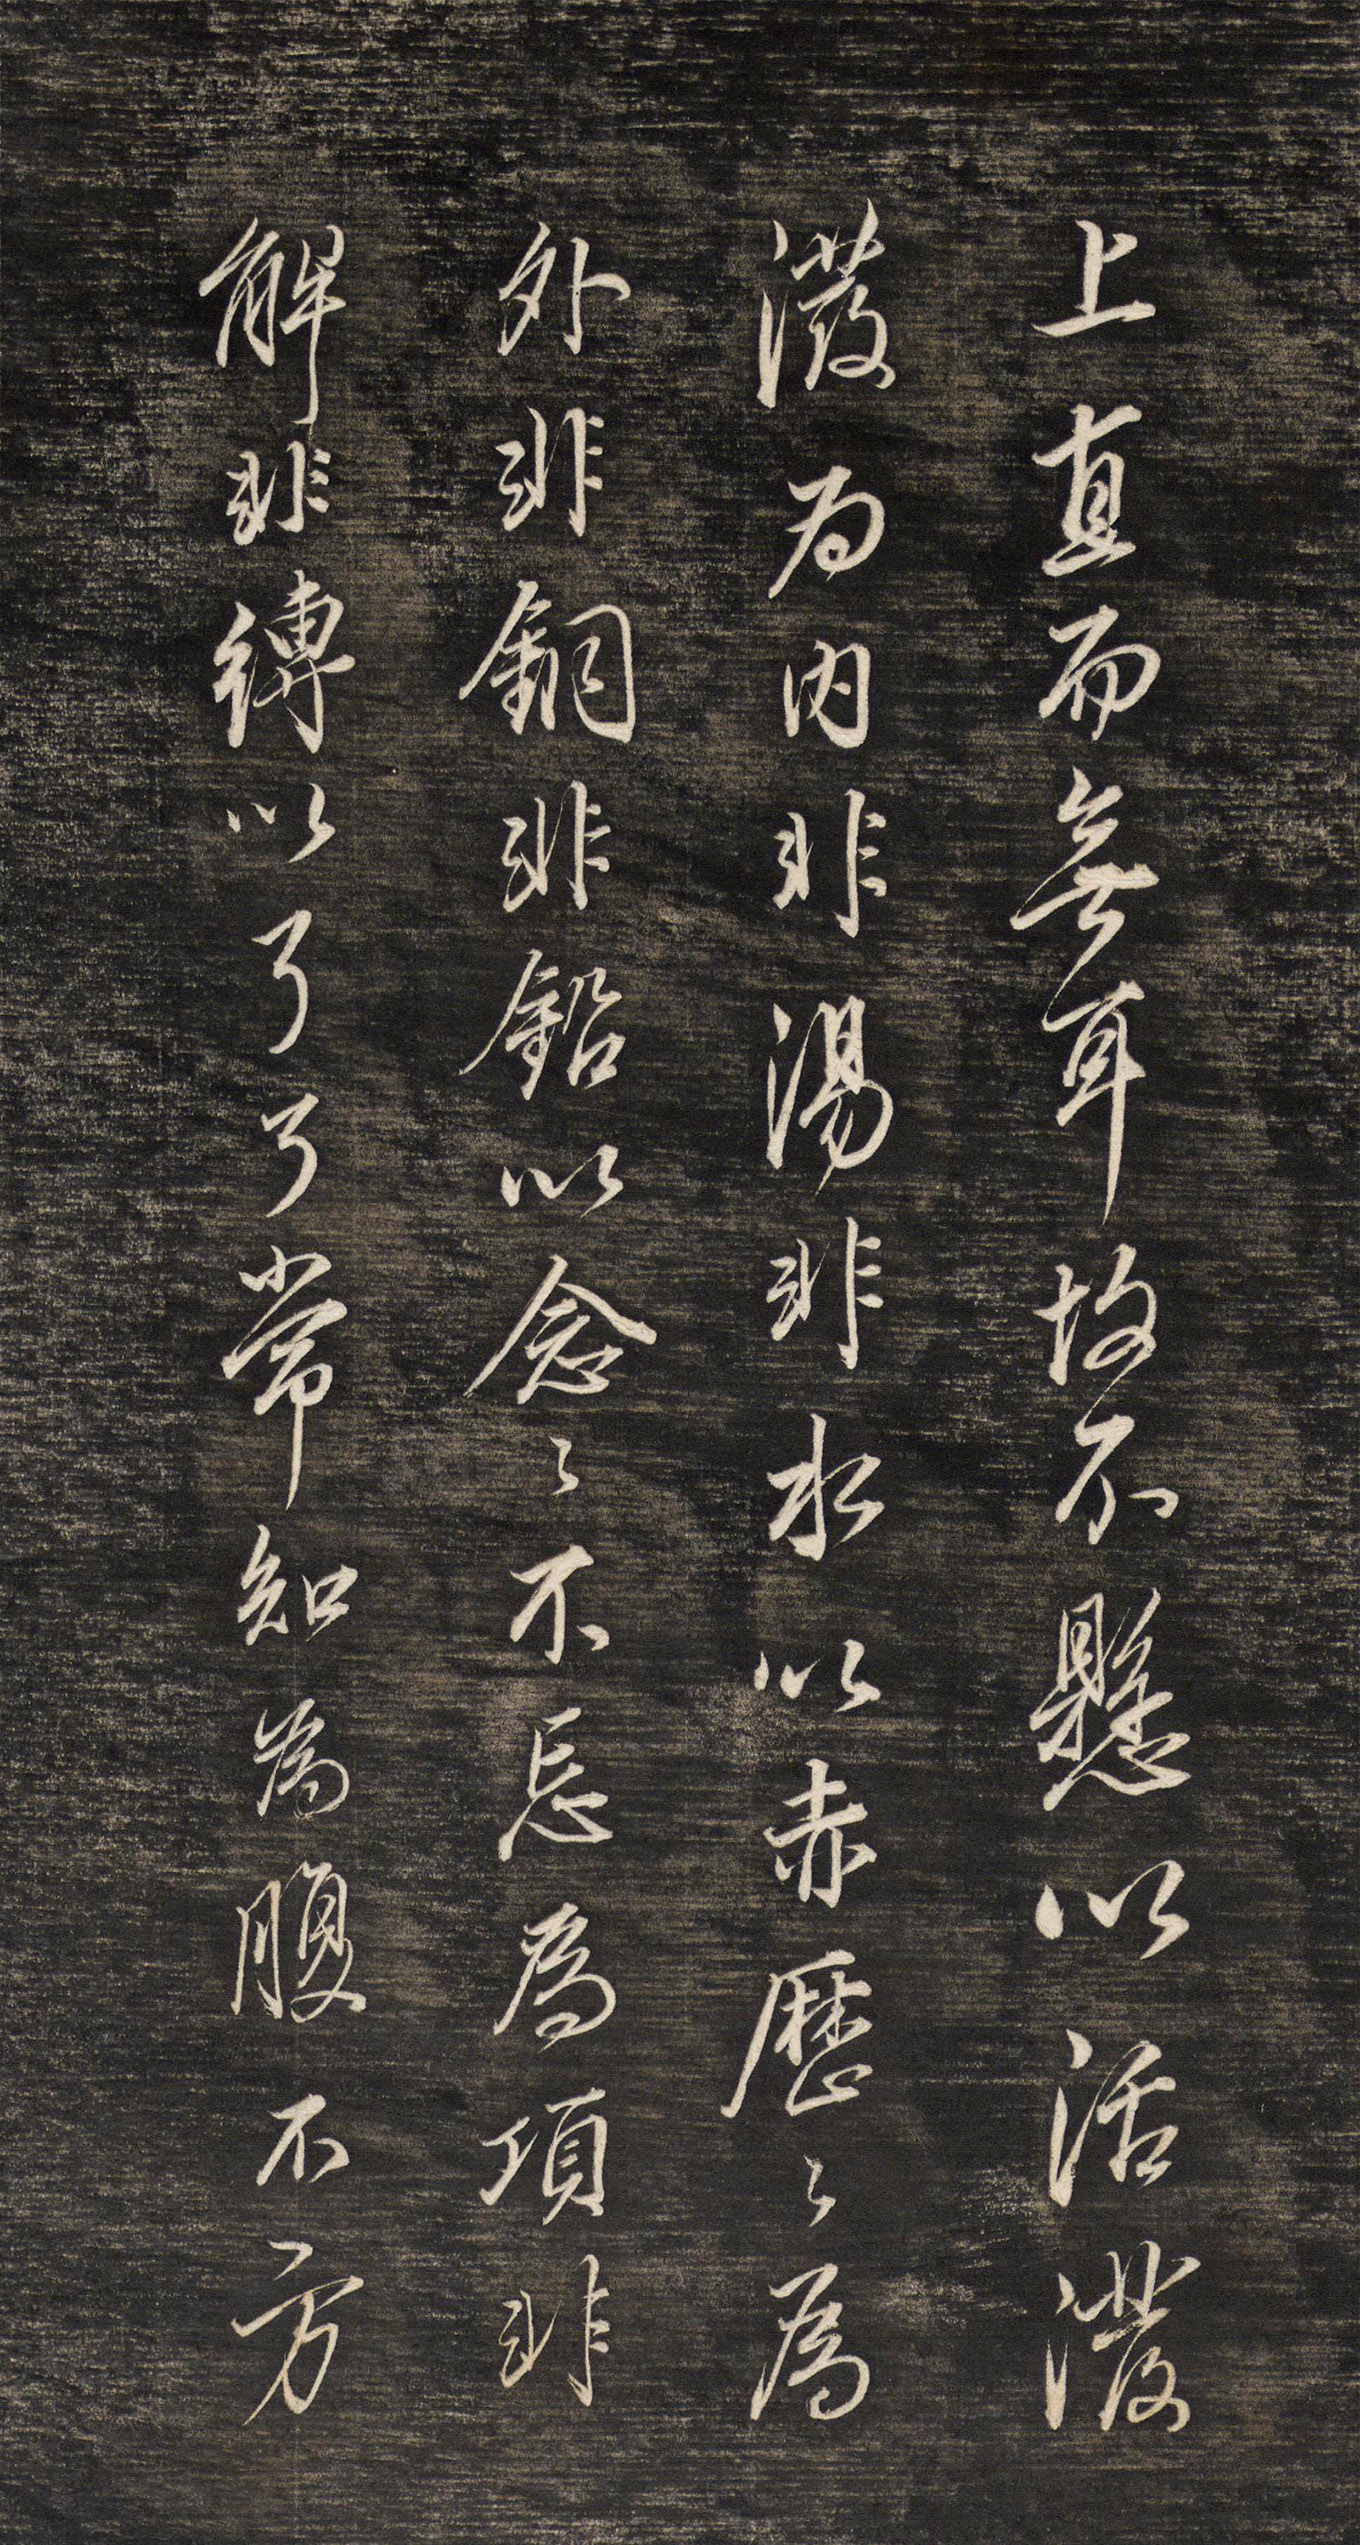 上直而無耳故不懸以活潑
潑為內非湯非水以赤歷〻為
外非銅非鉛以念〻不忘為項非
解非縛以了了常知為腹不方